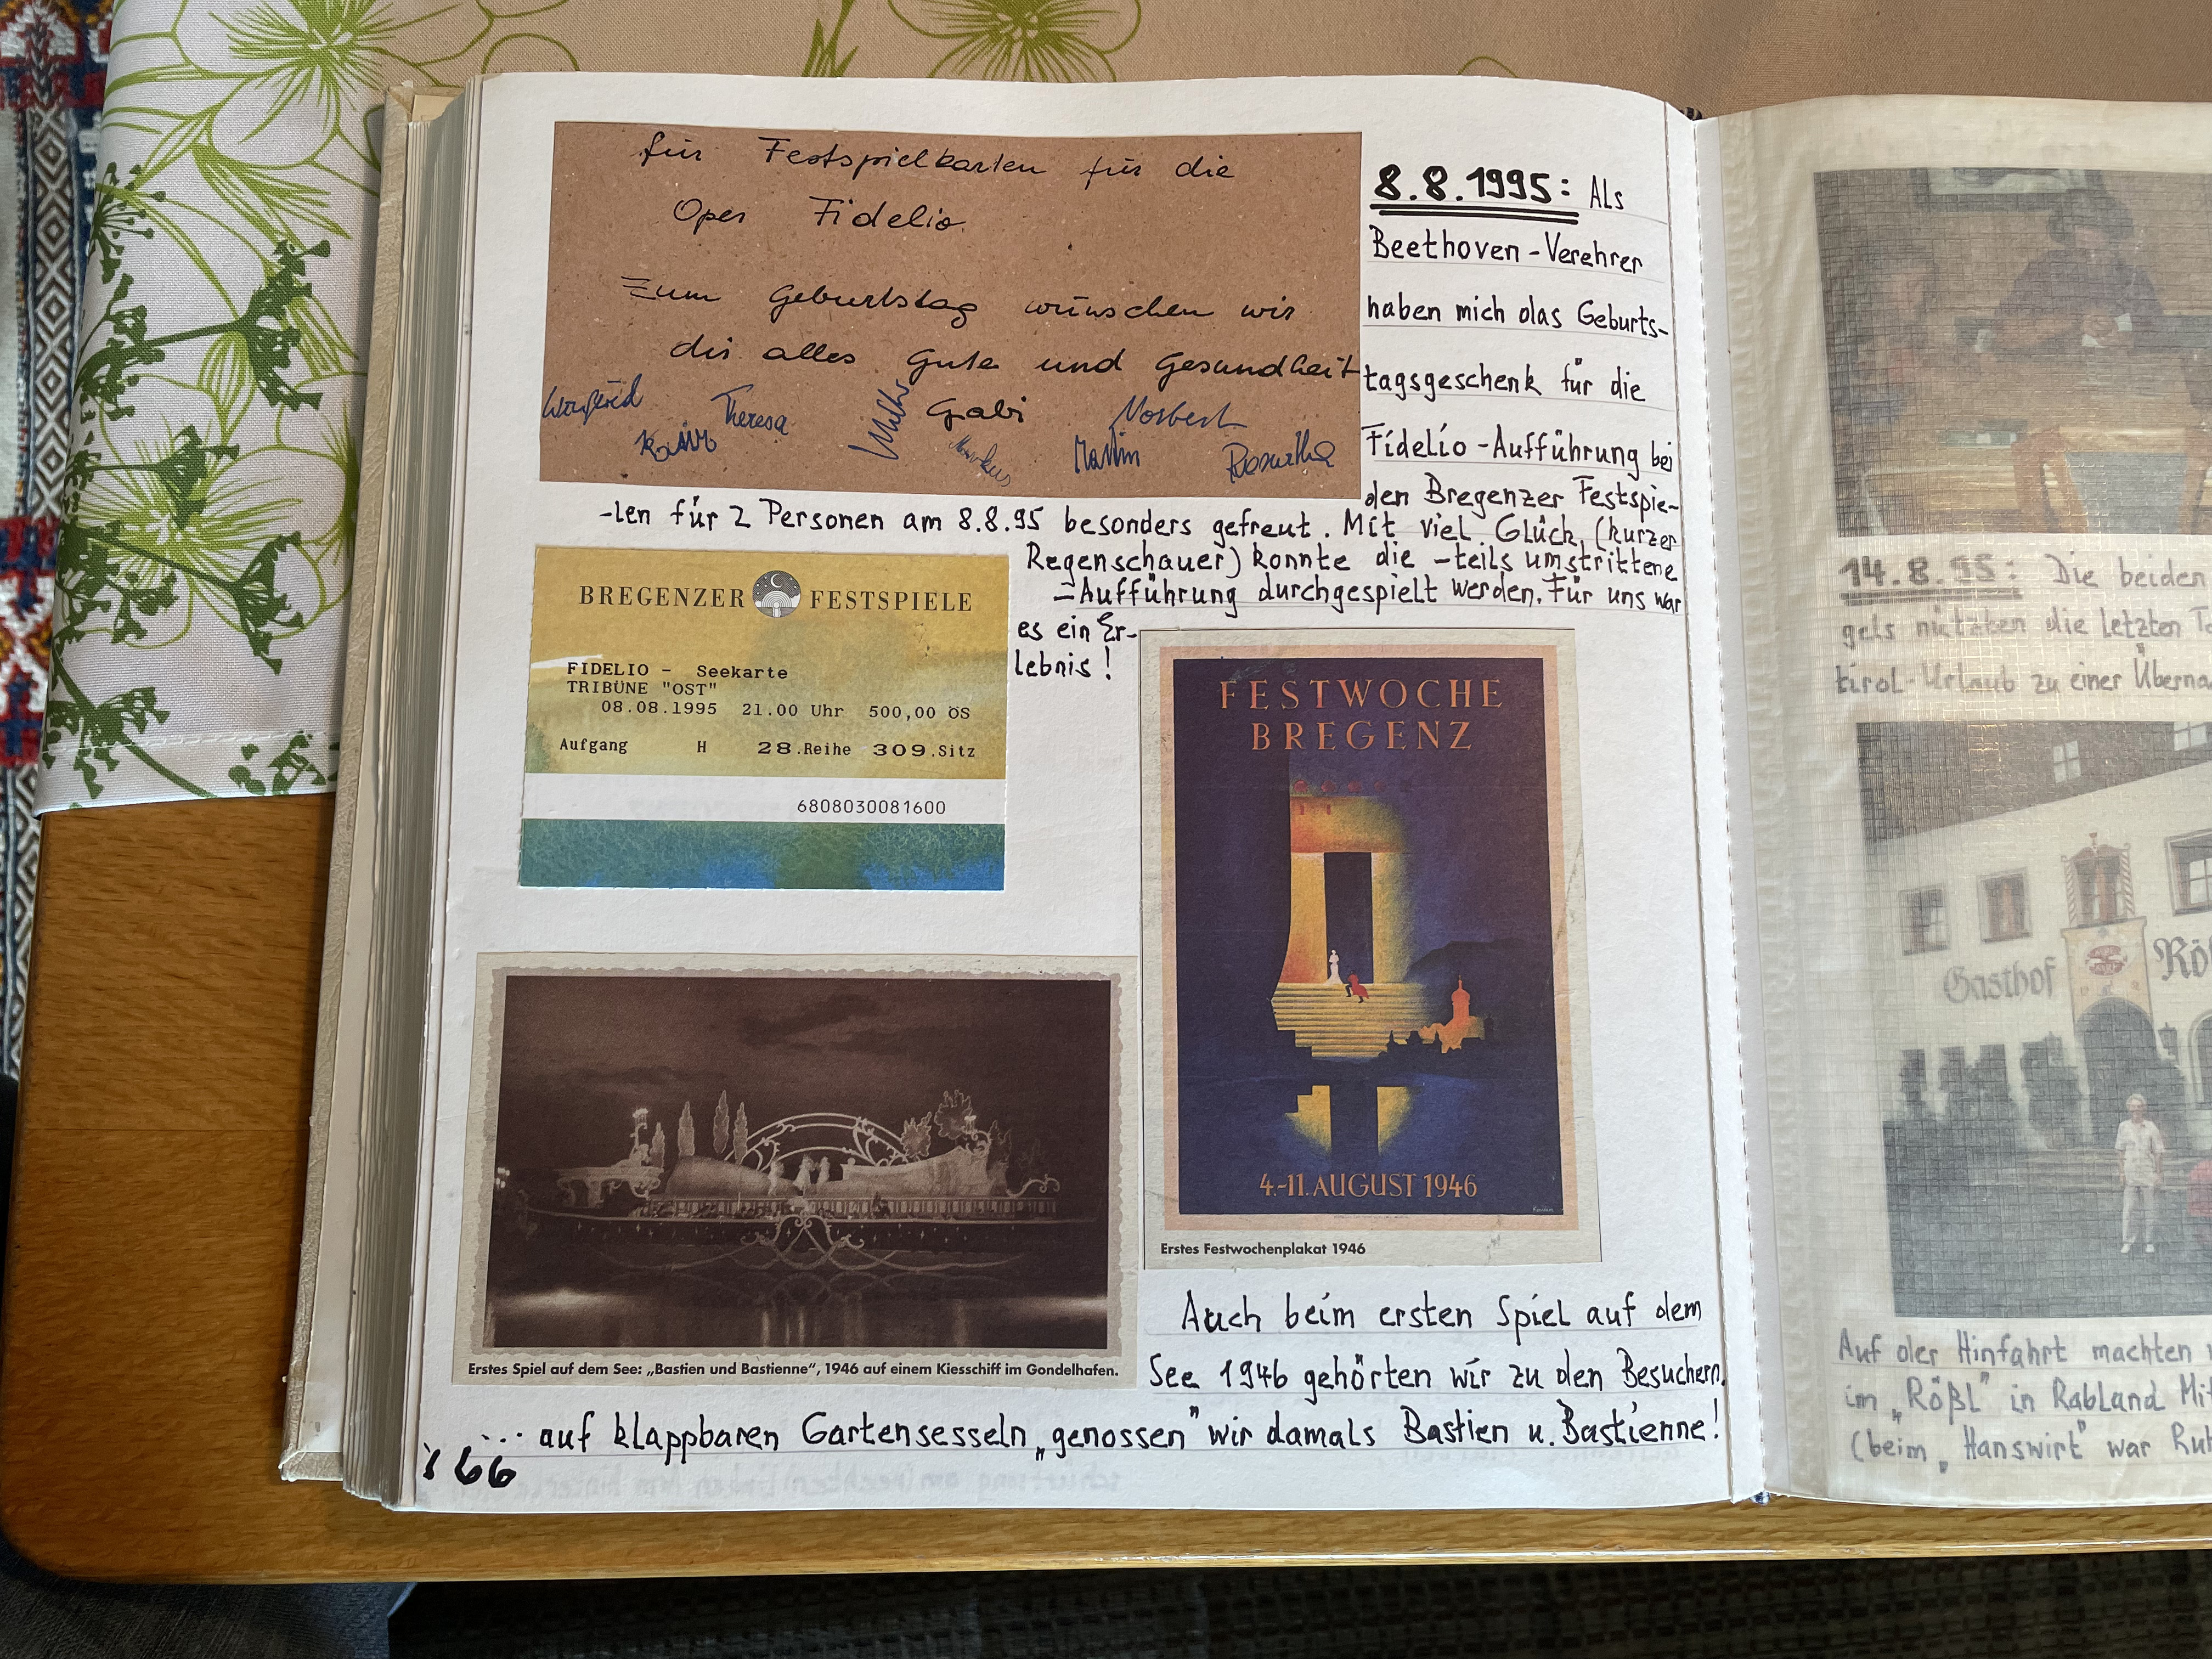 für Festspielkarten für die
Oper Fidelio.
Zum Geburtstag wünschen wir
dir alles Gute und Gesundheit
Winfried Theresa Gabi Norbert
Karin Markus Martin Roswitha
8.8.1995: Als
Beethoven-Verehrer
haben mich das Geburts-
tagsgeschenk für die
Fidelio-Aufführung bei
den Bregenzer Festspie-
-len für 2 Personen am 8.8.95 besonders gefreut. Mit viel Glück, (kurzer
Regenschauer) konnte die -teils umstrittene
-Aufführung durchgespielt werden. Für uns war
es ein Er-
lebnis!
BREGENZER FESTSPIELE
FIDELIO - Seekarte
TRIBÜNE "OST"
08.08.1995 21.00 Uhr 500,00 ÖS
Aufgang H 28.Reihe 309.Sitz
6808030081600
FESTWOCHE
BREGENZ
4.-11. AUGUST 1946
Erstes Festwochenplakat 1946
Erstes Spiel auf dem See: „Bastien und Bastienne“, 1946 auf einem Kiesschiff im Gondelhafen.
Auch beim ersten Spiel auf dem
See 1946 gehörten wir zu den Besuchern.
... auf klappbaren Gartensesseln „genossen" wir damals Bastien u. Bastienne!
166
14.8.95: Die beiden
gels nützten die letzten
tirol-Urlaub zu einer
Gasthof
Auf der Hinfahrt machten
im „Rößl" in Rabland
(beim „Hanswirt" war